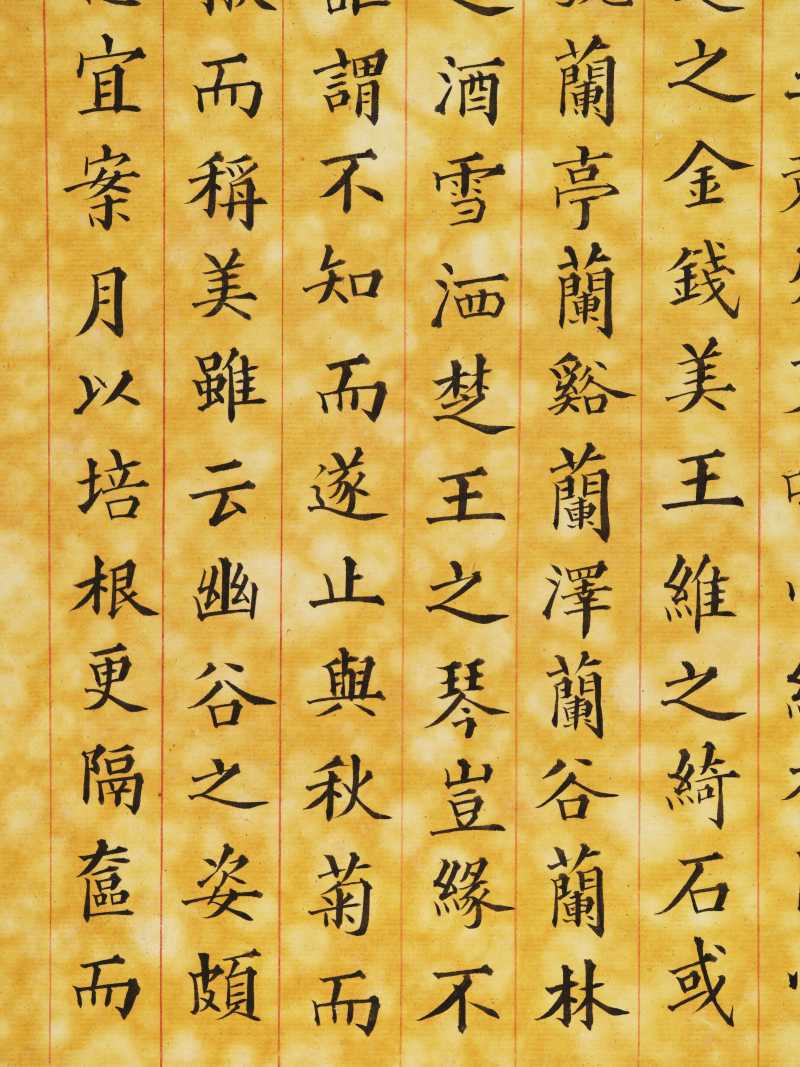 之金錢美王維之綺石或
蘭亭蘭谿蘭澤蘭谷蘭林
酒雪洒楚王之琴豈緣不
謂不知而遂止與秋菊而
而稱美雖云幽谷之姿頗
宜案月以培根更隔奩而